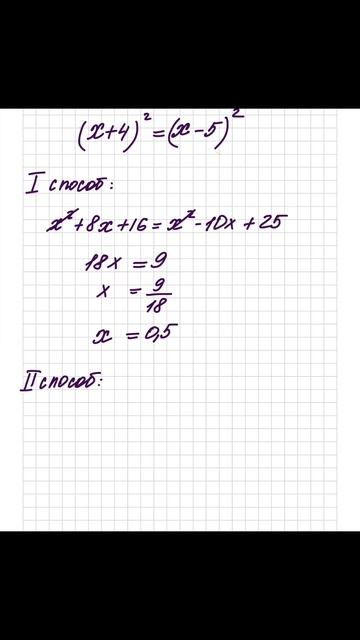 (x+4)² = (x-5)²
I способ:
x² + 8x + 16 = x² - 10x + 25
18x = 9
x = 9/18
x = 0,5
II способ: